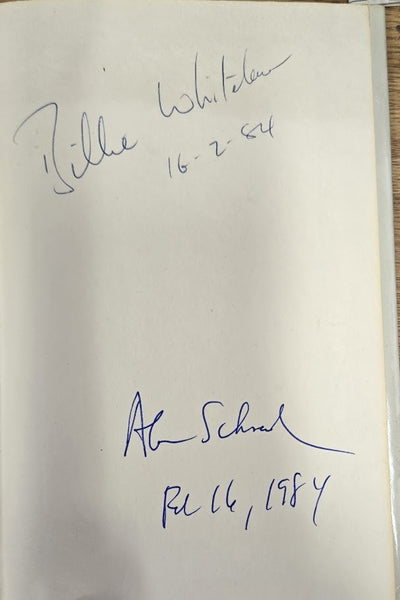 Billie Whitelaw
16-2-84
Alan Schneider
Feb 16, 1984